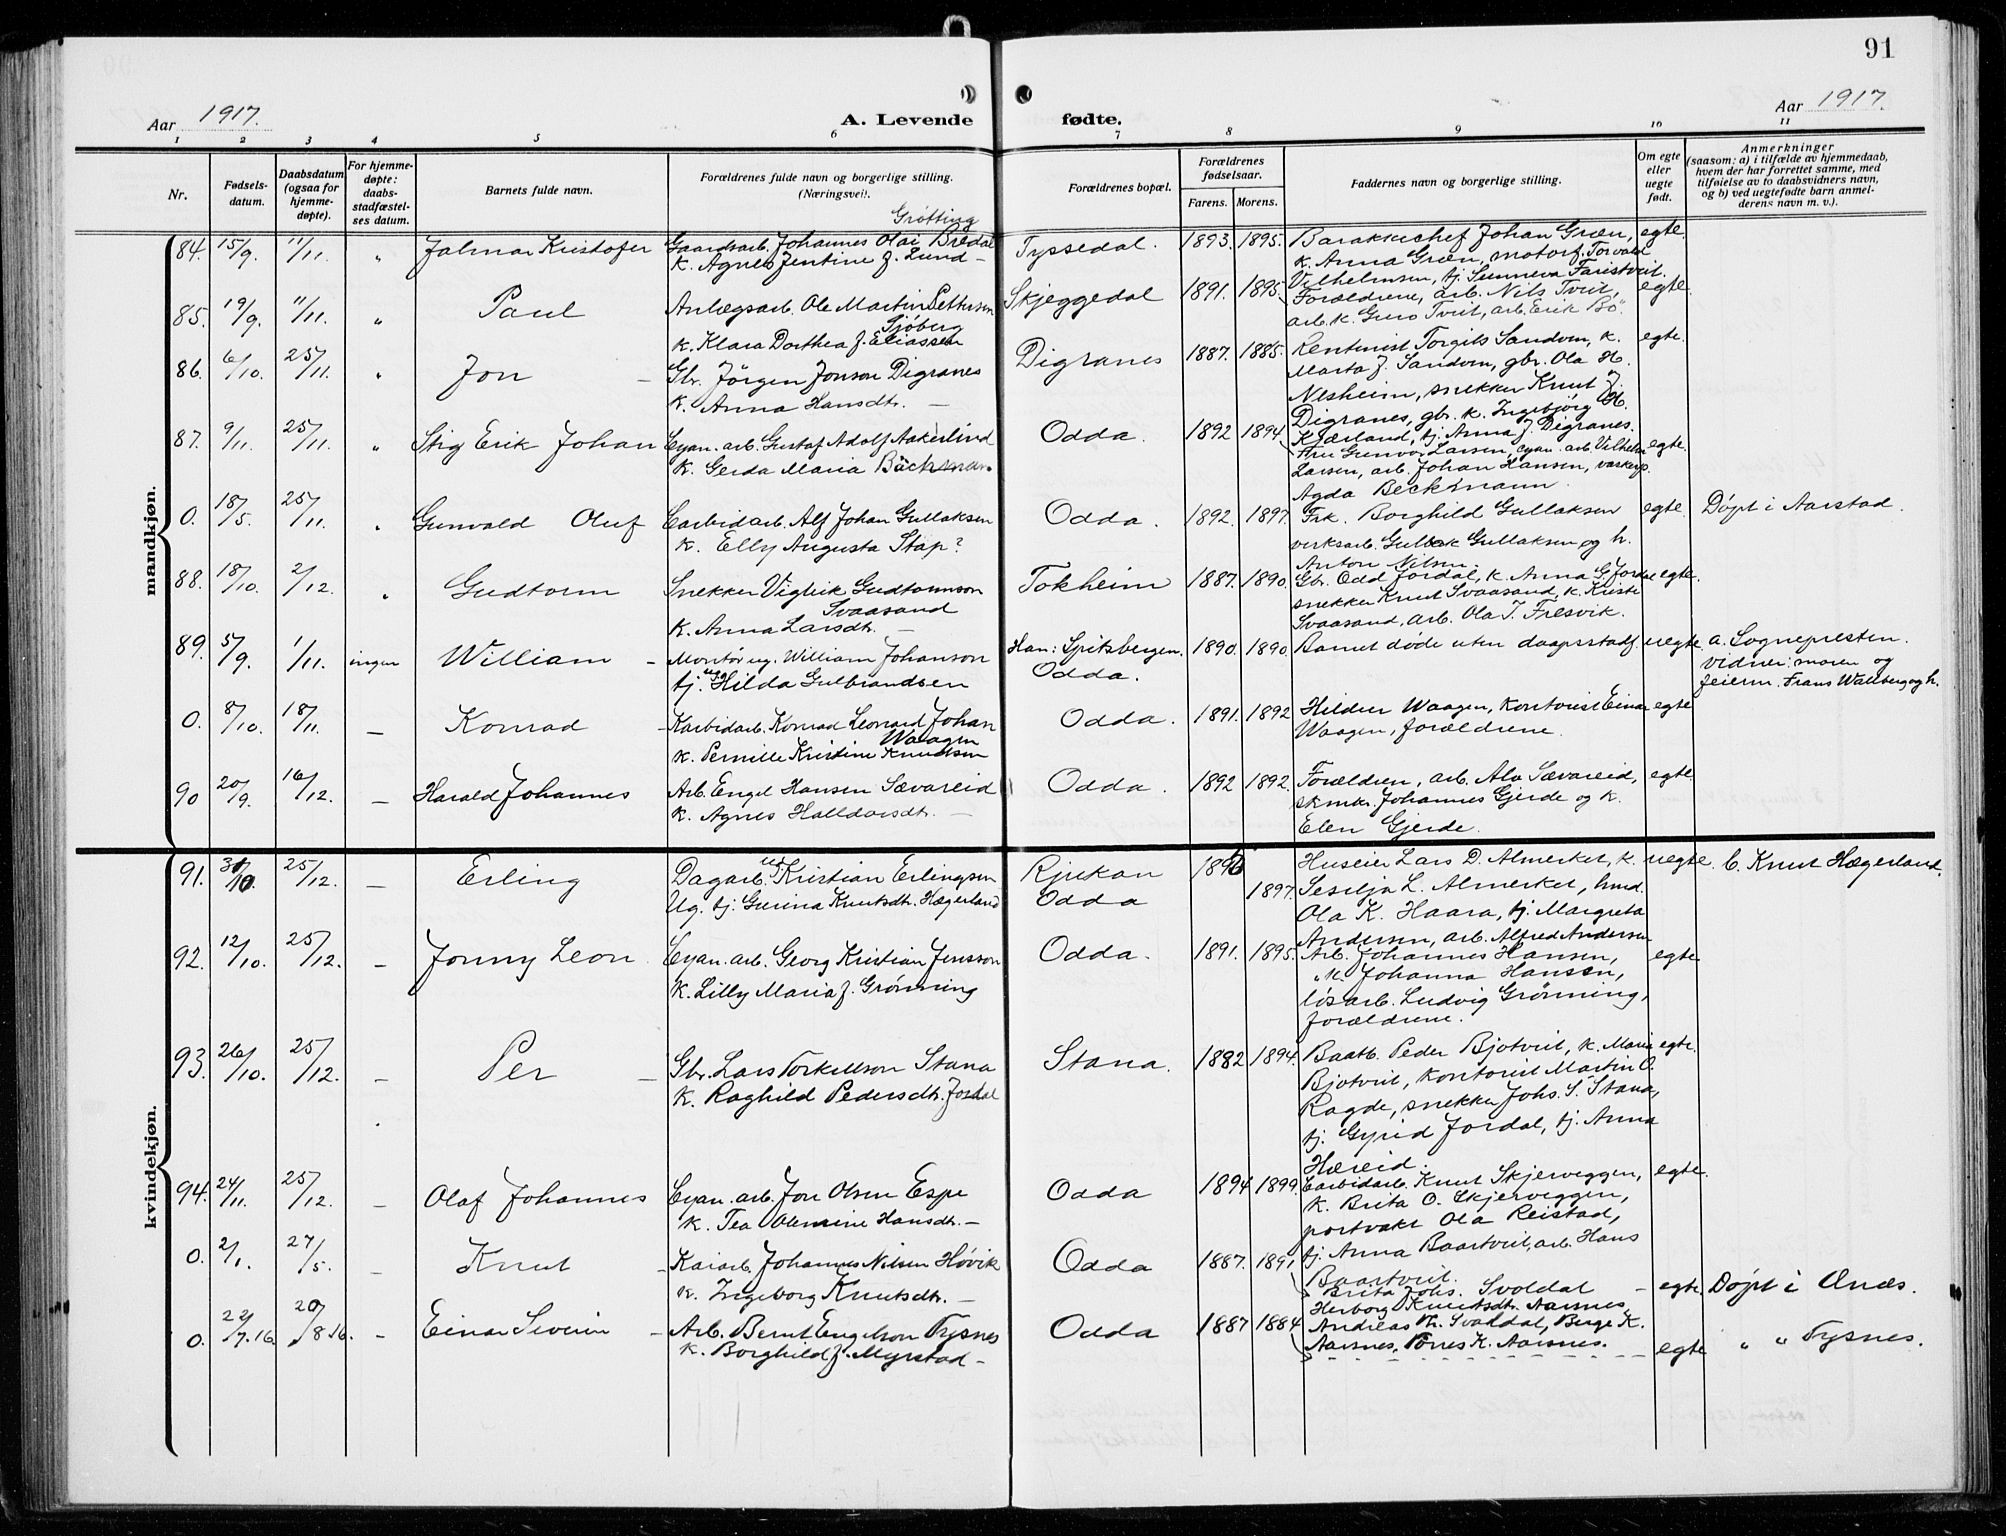 91
Aar 1917.
A. Levende fødte.
Aar 1917.
1 2 3 4 5 6 7 8 9 10 11
Nr.
Fødsels-
datum.
Daabsdatum
(ogsaa for
hjemme-
døpte).
For hjemme-
døpte:
daabs-
stadfæstel-
ses datum.
Barnets fulde navn.
Forældrenes fulde navn og borgerlige stilling.
(Næringsvei).
Forældrenes bopæl.
Forældrenes
fødselsaar.
Farens. Morens.
Faddernes navn og borgerlige stilling.
Om egte
eller
uegte
født.
Anmerkninger
(saasom: a) i tilfælde av hjemmedaab,
hvem der har forrettet samme, med
tilføielse av to daabsvidners navn,
og b) ved uegtefødte barn anmel-
derens navn m. v.).
mandkjøn.
84. 15/9. 11/11. " Jalmar Kristofer
Grötting
Gaardsarb. Johannes Olai Bredal
k. Agnes Jentine f. Lund –
Tyssedal. 1893. 1895.
Barakkechef Johan Græn,
k. Anna Græn, motorf. Torvald
Vilhelmsen, tj. Sunneva Faristveit.
egte.
85. 19/9. 11/11. " Paul
Anlægsarb. Ole Martin Pettersen
Sjöberg
k. Klara Dorthea f. Eliassen
Skjeggedal 1891. 1895.
Forældrene, arb. Nils Tveit,
arb. k. Guro Tveit, arb. Erik Bö.
egte.
86. 6/10. 25/11. " Jon –
Gbr. Jörgen Jonson Digranes
k. Anna Hansdtr. –
Digranes 1887. 1885.
Rentenist Torgils Sandven, k.
Marta J. Sandven, gbr. Ola H.
Nesheim, snekker Knut J.
Digranes, gbr. k. Ingebjörg H.
Kjærland, tj. Anna J. Digranes.
egte.
87. 9/11. 25/11. " Stig Erik Johan
Cyan. arb. Gustaf Adolf Aakerlind
k. Gerda Maria Bäckman.
Odda. 1892 1894
Fru Gunvor Larsen, cyan. arb. Vilhelm
Larsen, arb. Johan Hansen,
Agda Beckmann.
egte.
0. 18/5. 25/11. " Gunvald Oluf
Carbidarb. Alf Johan Gullaksen
k. Elly Augusta Stap?
Odda. 1892. 1897.
Frk. Borghild Gullaksen
verksarb. Gullak Gullaksen og h.
Anton Nilsen.
egte. Döpt i Aarstad.
88. 18/10. 2/12. " Gudtorm
Snekker Vigleik Gudtormson
Svaasand
k. Anna Larsdtr. –
Tokheim 1887. 1890.
Gbr. Odd Jordal, k. Anna G. Jordal
snekker Knut Svaasand, k. Kristi
Svaasand, arb. Ola T. Fresvik.
egte.
89. 5/9. 1/11. ingen William –
Montör ug. William Johanson
tj. ug Hilda Gulbrandsen
Han: Spitsbergen.
Odda.
1890. 1890.
Barnet døde uten daapsstadf.
uegte. a. Sognepresten.
vidner: moren og
feieren. Frans Wallberg og h.
0. 8/10. 18/11. – Konrad –
Karbidarb. Konrad Leonard Johan
Waagen
k. Pernille Kristine Knudsen
Odda. 1891. 1892
Hildur Waagen, kontorist Einar
Waagen, forældrene.
egte
90 20/9. 16/12. – Harald Johannes
Arb. Engel Hansen Sævareid
k. Agnes Halldorsdtr. –
Odda. 1892 1892.
Forældren, arb. Alv Sævareid,
skmkr. Johannes Gjerde og k.
Elen Gjerde.
egte.
kvindekjøn.
91. 31/10. 25/12. – Erling
Dagarb. ug Kristian Erlingsen
Ug. tj. Gurina Knutsdtr. Hægerland
Rjukan
Odda
1896
1897.
Huseier Lars D. Almerket, k.
Sesilja L. Almerket, hmd.
Ola K. Haara, tj. Margreta
Andersen, arb. Alfred Andersen
uegte. b. Knut Hægerland.
92. 12/10. 25/12. – Jonny Leon.
Cyan. arb. Georg Kristian Jensson
k. Lilly Maria f. Grönning
Odda. 1891. 1895.
Arb. Johannes Hansen,
" k. Johanna Hansen,
lösarb. Ludvig Grönning,
forældrene.
egte
93. 26/10. 25/12. – Per –
Gbr. Lars Torkellson Stana
k. Raghild Pedersdtr. Jordal
Stana. 1882 1894.
Baatb. Peder Bjotveit, k. Maria
Bjotveit, kontorist Martin O.
Ragde, snekker Johs. S. Stana,
tj. Gyrid Jordal, tj. Anna
Hæreid.
egte.
94. 24/11. 25/12. – Olaf Johannes
Cyan. arb. Jon Olsen Espe
k. Tea Olemine Hansdtr. –
Odda 1894 1899.
Carbidarb. Knut Skjerveggen,
k. Brita O. Skjerveggen,
portvakt Ola Reistad,
tj. Anna Baartveit, arb. Hans
Baartveit.
egte.
0. 2/1. 27/5. – Knut –
Kaiarb. Johannes Nilsen Hövik
k. Ingeborg Knutsdtr. –
Odda 1887. 1891
Brita Johs. Svoldal –
Herborg Knutsdtr. Aarsnes.
Andreas Th. Svaldal, Berge K.
Aarsnes, Tönes K. Aarsnes.
egte. Döpt i Ænæs.
0. 22/7.16. 20/8 16. – Einar Severin –
Arb. Bernt Engelson Tysnes
k. Borghild f. Myrstad –
Odda 1887 1884
egte " " Tysnes.